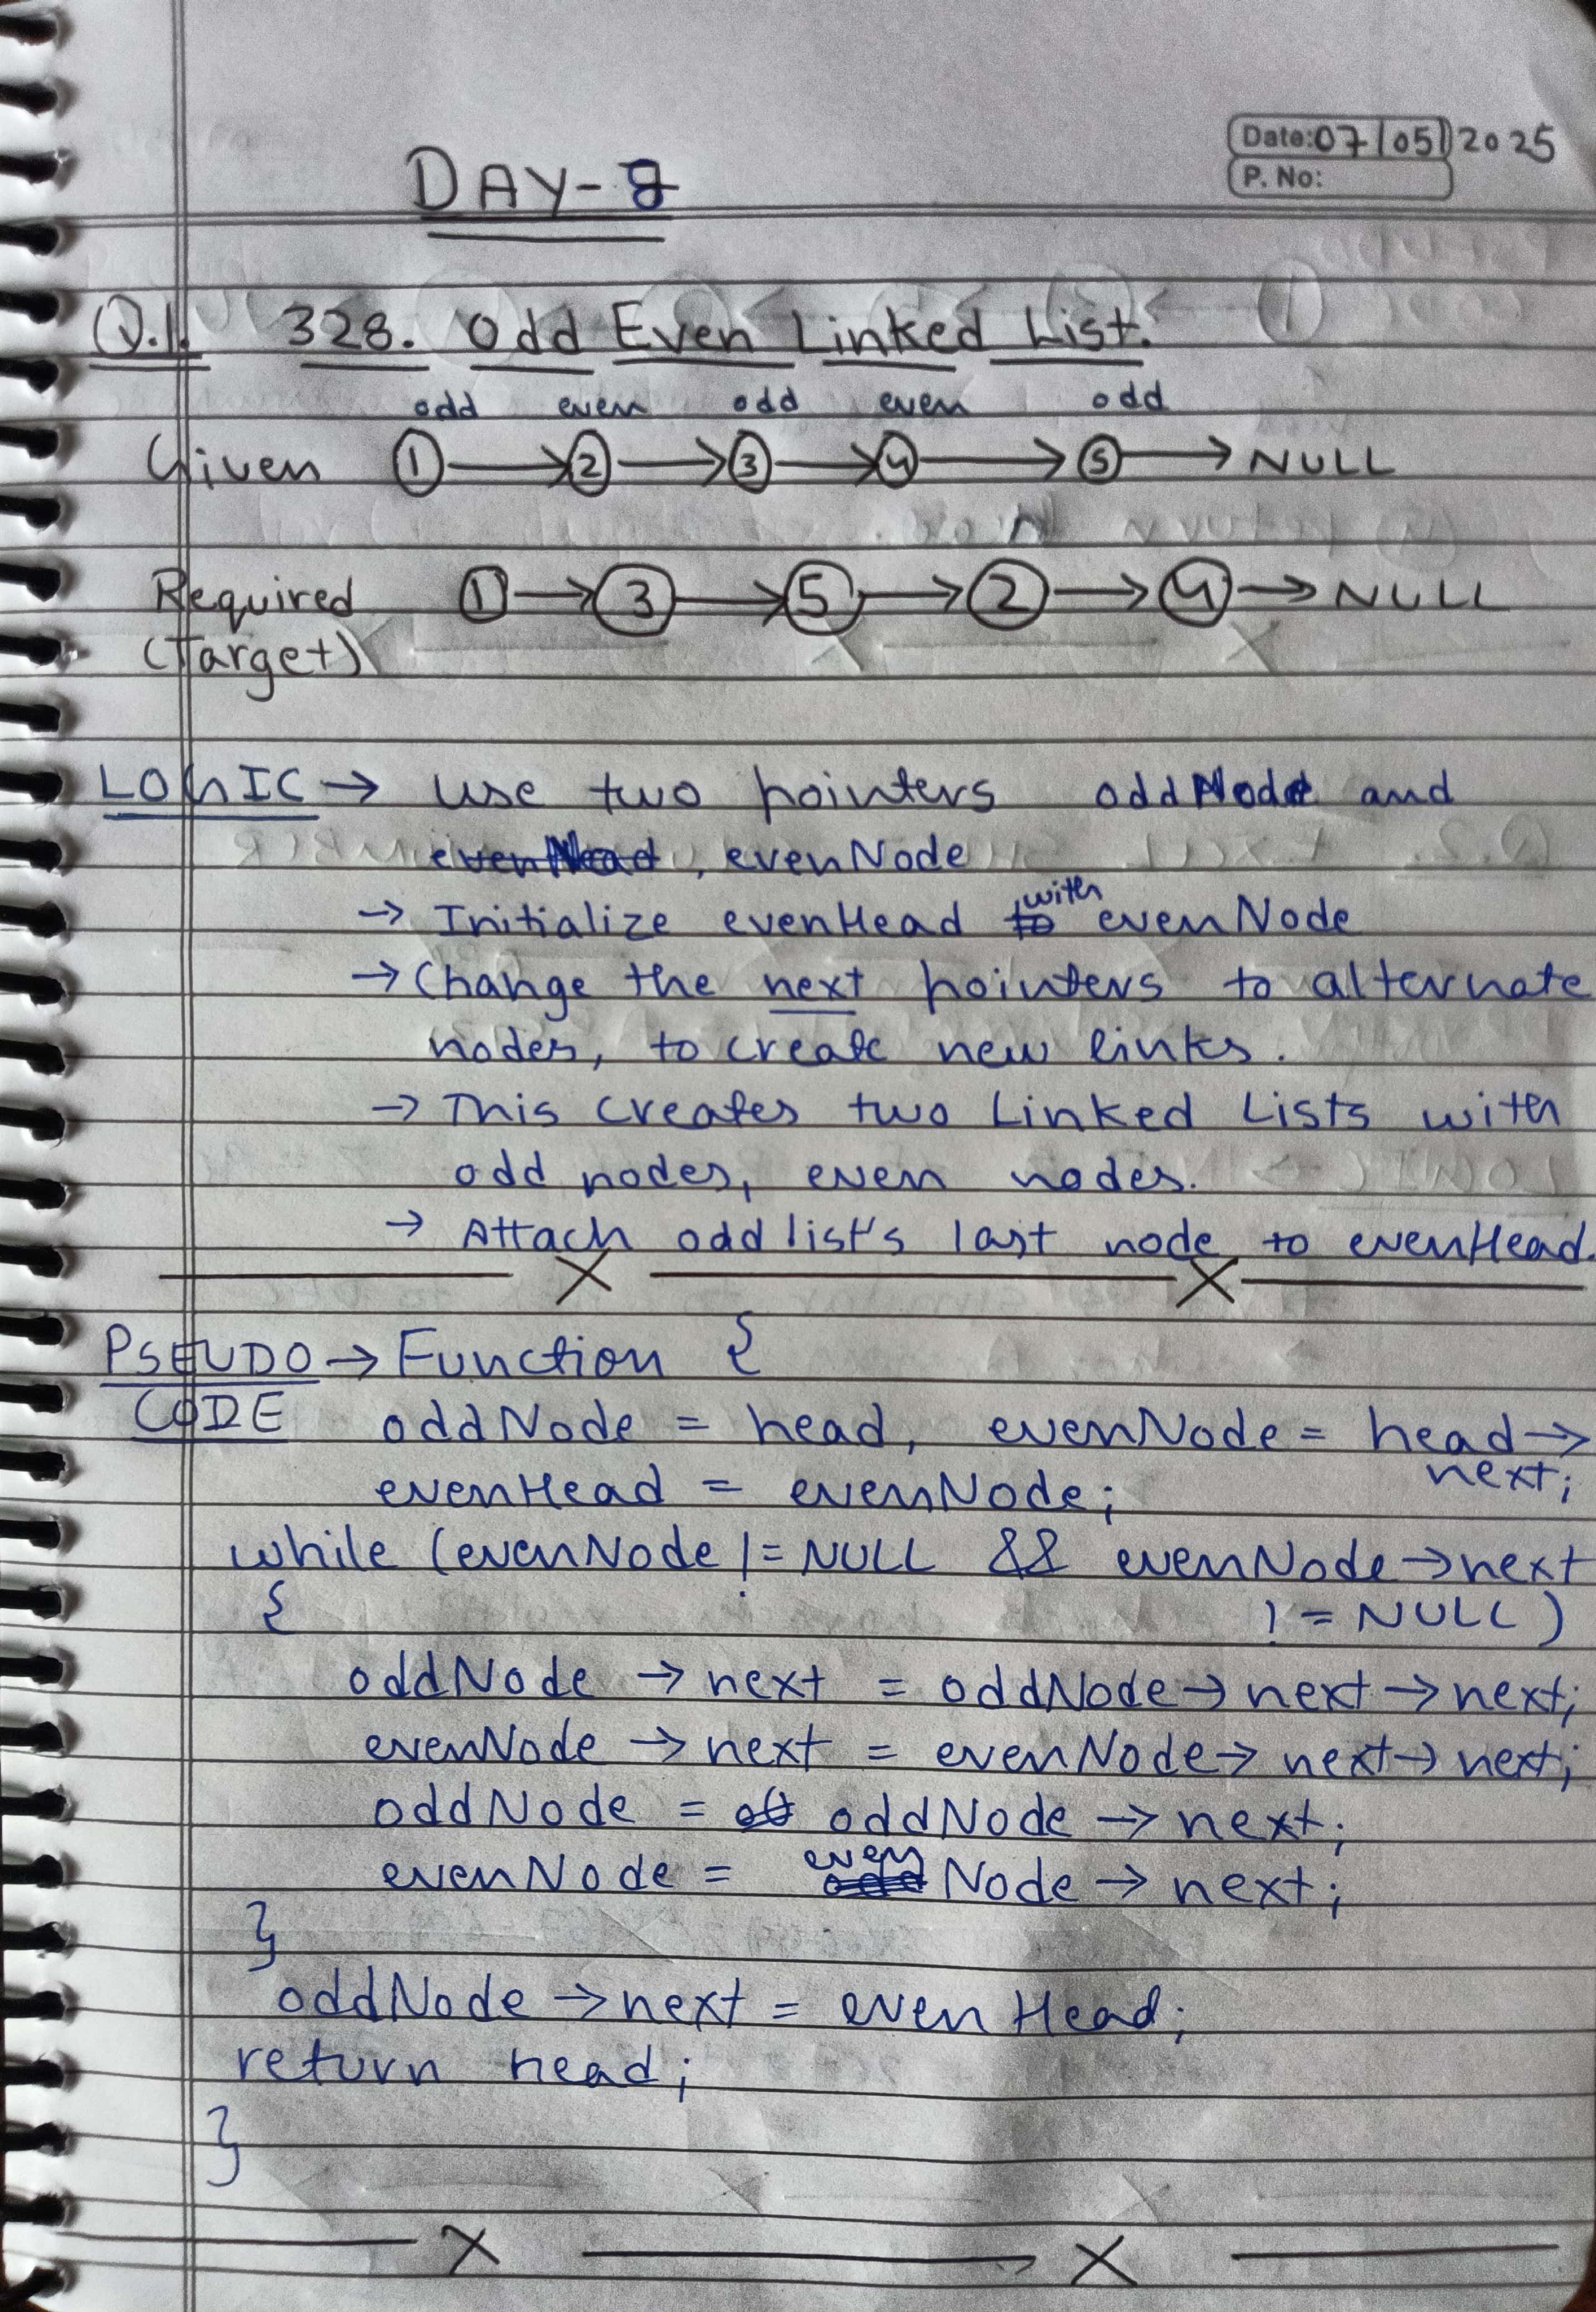 Date: 07/05/2025
P. No:
DAY-8
Q.1. 328. Odd Even Linked List.
odd even odd even odd
Given 1 → 2 → 3 → 4 → 5 → NULL
Required 1 → 3 → 5 → 2 → 4 → NULL
(Target)
LOGIC → Use two pointers oddNode and
evenHead, evenNode
→ Initialize evenHead to with evenNode
→ Change the next pointers to alternate
nodes, to create new links.
→ This creates two Linked Lists with
odd nodes, even nodes.
→ Attach odd list's last node to evenHead.
PSEUDO → Function {
CODE oddNode = head, evenNode = head →
next;
evenHead = evenNode;
while (evenNode != NULL && evenNode → next
{ != NULL)
oddNode → next = oddNode → next → next;
evenNode → next = evenNode → next → next;
oddNode = oddNode → next;
evenNode = evenNode → next;
}
oddNode → next = evenHead;
return head;
}